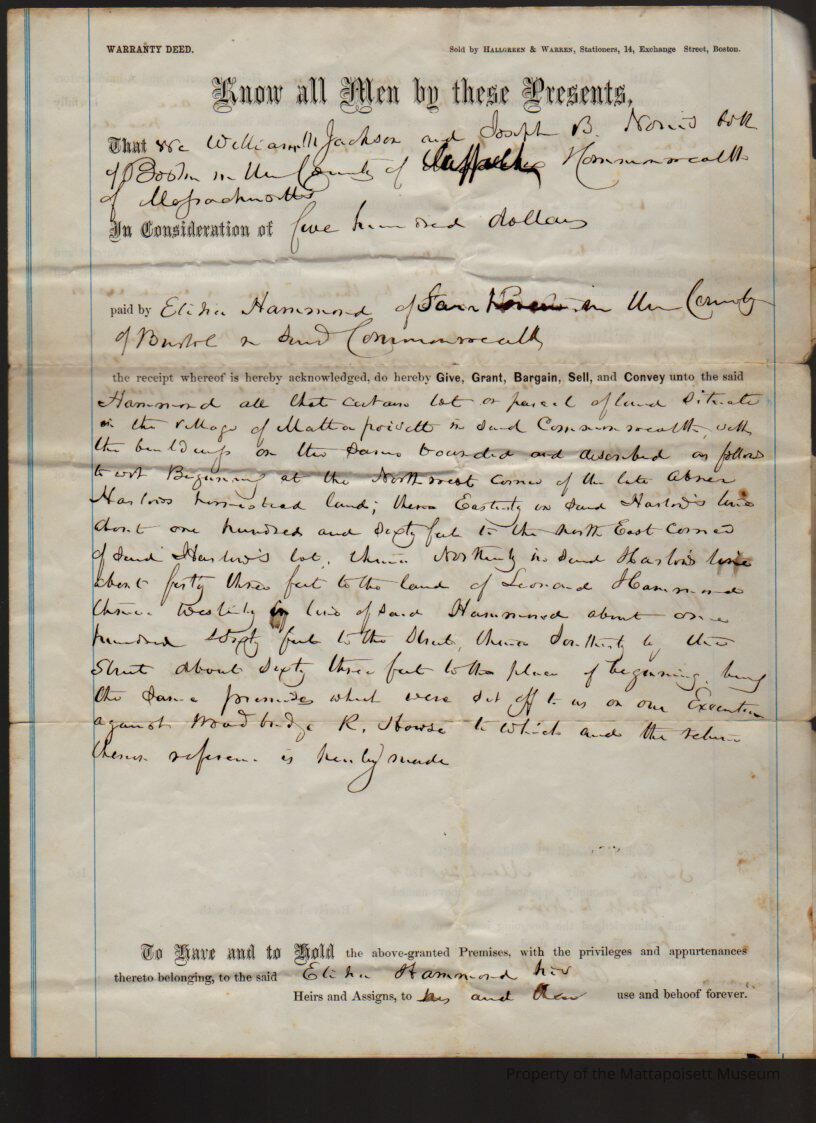 WARRANTY DEED.
Sold by HALLGREEN & WARREN, Stationers, 14, Exchange Street, Boston.
Know all Men by these Presents,
That We William Jackson and Joseph B. Norris both
of Boston in the County of Suffolk Commonwealth
of Massachusetts
In Consideration of five hundred dollars
paid by Elisha Hammond of Fair Haven in the County
of Bristol in said Commonwealth
the receipt whereof is hereby acknowledged, do hereby Give, Grant, Bargain, Sell, and Convey unto the said
Hammond all that certain lot or parcel of land situate
in the village of Mattapoisett in said Commonwealth, with
the buildings on the same bounded and described as follows
to wit Beginning at the North west corner of the late Abner
Harlows homestead land; thence Easterly in said Harlow's line
about one hundred and sixty feet to the north East corner
of said Harlow's lot, thence Northerly in said Harlows line
about forty three feet to the land of Leonard Hammond
thence westerly in line of said Hammond about one
hundred sixty feet to the Street, thence Southerly by the
Street about sixty three feet to the place of beginning, being
the same premises which were set off to us on our Execution
against Woodbridge R. Howse to which and the return
thereon reference is hereby made
To Have and to Hold the above-granted Premises, with the privileges and appurtenances
thereto belonging, to the said Elisha Hammond his
Heirs and Assigns, to his and their use and behoof forever.
Property of the Mattapoisett Museum